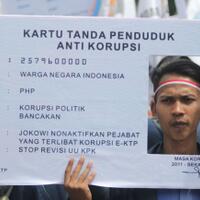 KARTU TANDA PENDUDUK
ANTI KORUPSI
: 2579600000
: WARGA NEGARA INDONESIA
: PHP
: KORUPSI POLITIK
BANCAKAN
: JOKOWI NONAKTIFKAN PEJABAT
YANG TERLIBAT KORUPSI E-KTP
: STOP REVISI UU KPK
MASA
2011 - SEK